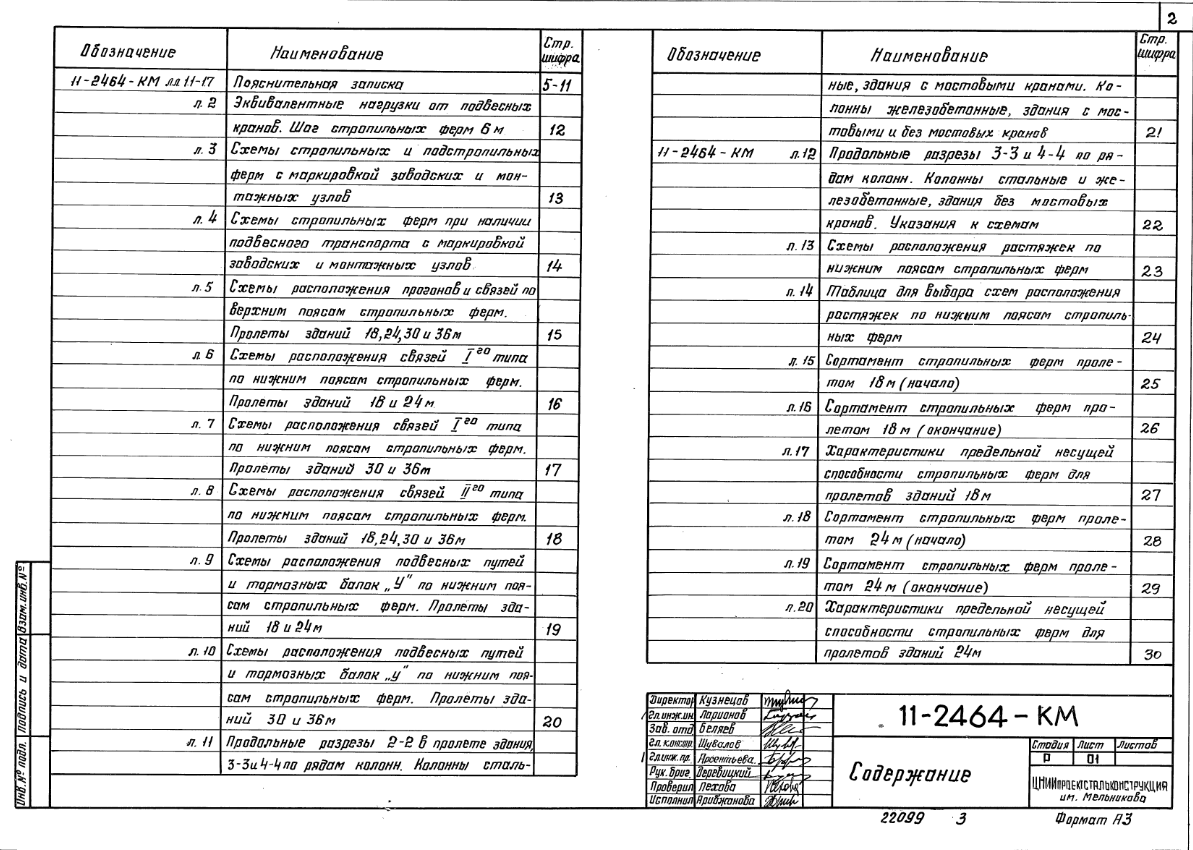 2
Обозначение Наименование Стр. шифра
11-2464-КМ лл 1.1-1.7 Пояснительная записка 5-11
л. 2 Эквивалентные нагрузки от подвесных
кранов. Шаг стропильных ферм 6 м 12
л. 3 Схемы стропильных и подстропильных
ферм с маркировкой заводских и мон-
тажных узлов 13
л. 4 Схемы стропильных ферм при наличии
подвесного транспорта с маркировкой
заводских и монтажных узлов 14
л. 5 Схемы расположения прогонов и связей по
верхним поясам стропильных ферм.
Пролеты зданий 18,24,30 и 36м 15
л. 6 Схемы расположения связей I го типа
по нижним поясам стропильных ферм.
Пролеты зданий 18 и 24 м. 16
л. 7 Схемы расположения связей I го типа
по нижним поясам стропильных ферм.
Пролеты зданий 30 и 36м 17
л. 8 Схемы расположения связей II го типа
по нижним поясам стропильных ферм.
Пролеты зданий 18,24,30 и 36м 18
л. 9 Схемы расположения подвесных путей
и тормозных балок „У" по нижним поя-
сам стропильных ферм. Пролеты зда-
ний 18 и 24м 19
л. 10 Схемы расположения подвесных путей
и тормозных балок „У" по нижним поя-
сам стропильных ферм. Пролеты зда-
ний 30 и 36м 20
л. 11 Продольные разрезы 2-2 в пролете здания,
3-3и4-4по рядам колонн. Колонны сталь-
Обозначение Наименование Стр. шифра
ные, здания с мостовыми кранами. Ко-
лонны железобетонные, здания с мос-
товыми и без мостовых кранов 21
11-2464-КМ л.12 Продольные разрезы 3-3 и 4-4 по ря-
дам колонн. Колонны стальные и же-
лезобетонные, здания без мостовых
кранов. Указания к схемам 22
л. 13 Схемы расположения растяжек по
нижним поясам стропильных ферм 23
л. 14 Таблица для выбора схем расположения
растяжек по нижним поясам стропиль-
ных ферм 24
л. 15 Сортамент стропильных ферм проле-
том 18 м (начало) 25
л. 16 Сортамент стропильных ферм про-
летом 18 м (окончание) 26
л. 17 Характеристики предельной несущей
способности стропильных ферм для
пролетов зданий 18м 27
л. 18 Сортамент стропильных ферм проле-
том 24 м (начало) 28
л. 19 Сортамент стропильных ферм проле-
том 24 м (окончание) 29
л. 20 Характеристики предельной несущей
способности стропильных ферм для
пролетов зданий 24м 30
Инв. № подл. Подпись и дата Взам.инв.№
Директор Кузнецов
Гл.инж.ин. Ларионов
Зав. отд Беляев
Гл. констр. Шувалов
Гл.инж. пр.
Рук. бриг Деревицкий
Проверил Пехова
Исполнил
11-2464-КМ
Содержание
Стадия Лист Листов
Р 01
ЦНИИПРОЕКТСТАЛЬКОНСТРУКЦИЯ
им. Мельникова
22099 3 Формат А3